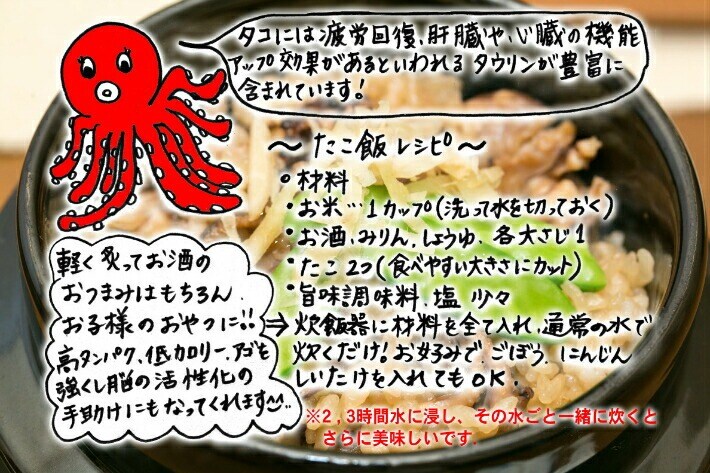 タコには疲労回復、肝臓や、心臓の機能
アップ効果があるといわれる タウリンが豊富に
含まれています!
～ たこ飯 レシピ ～
・材料
・お米…1カップ(洗って水を切っておく)
・お酒、みりん、しょうゆ、各大さじ1
・たこ2コ(食べやすい大きさにカット)
・旨味調味料、塩 少々
⇒ 炊飯器に材料を全て入れ、通常の水で
炊くだけ!お好みで、ごぼう、にんじん
しいたけを入れてもOK.
※2,3時間水に浸し、その水ごと一緒に炊くと
さらに美味しいです.
軽く炙ってお酒の
おつまみはもちろん、
お子様のおやつに!!
高タンパク、低カロリー、アゴも
強くし脳の活性化の
手助けにもなってくれます